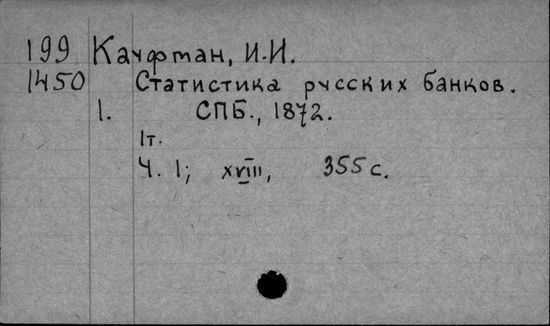 199 Кауфман, И.И.
1450 Статистика русских банков.
1. СПБ., 1872.
1т.
Ч. 1; XVIII, 355 с.